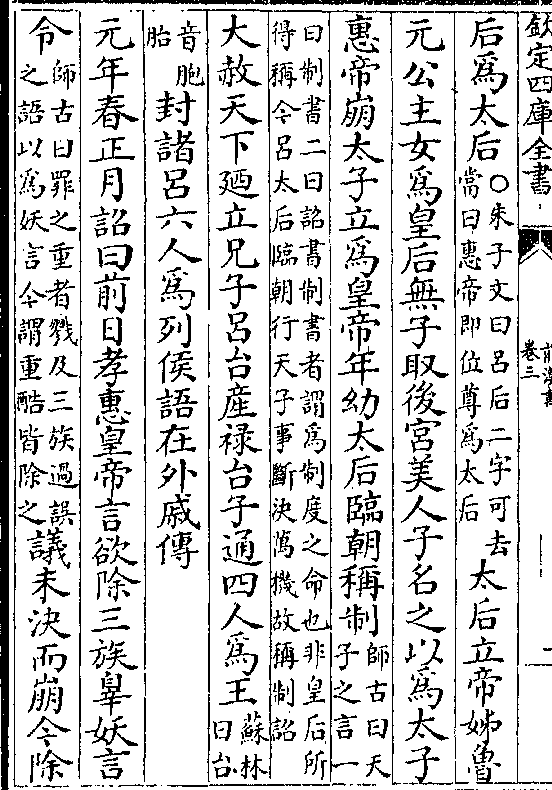 欽定四庫全書
前漢書
卷三
后爲太后○朱子文曰呂后二字可去
當曰惠帝即位尊爲太后太后立帝姊魯
元公主女爲皇后無子取後宮美人子名之以爲太子
惠帝崩太子立爲皇帝年幼太后臨朝稱制師古曰天
子之言一
曰制書二曰詔書制書者謂爲制度之命也非皇后所
得稱今呂太后臨朝行天子事斷決萬機故稱制詔
大赦天下廼立兄子呂台產祿台子通四人爲王蘇林
曰台
音胞
胎封諸呂六人爲列侯語在外戚傳
元年春正月詔曰前日孝惠皇帝言欲除三族辠妖言
令師古曰罪之重者戮及三族過誤
之語以爲妖言今謂重酷皆除之議未決而崩今除